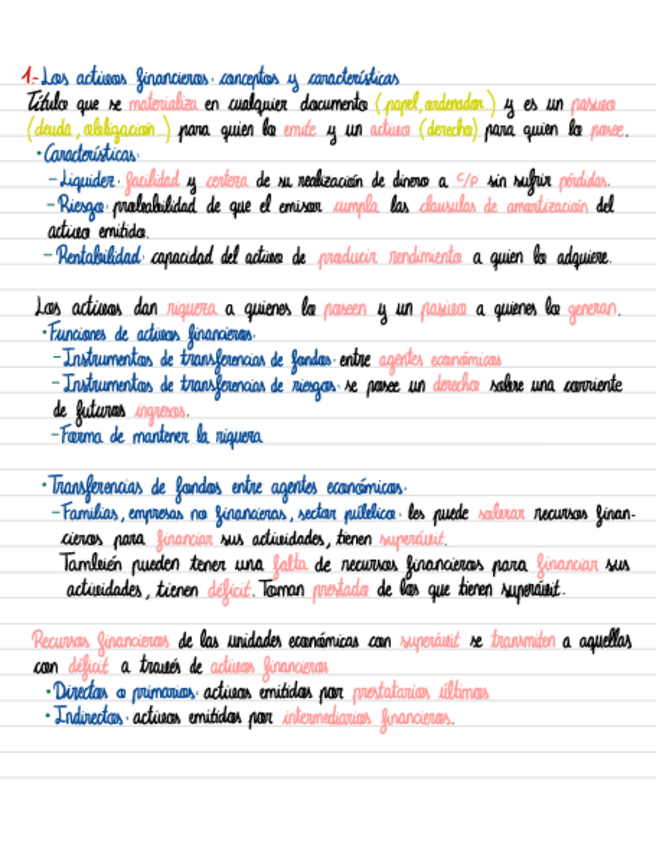 1.- Los activos financieros: conceptos y características
Título que se materializa en cualquier documento (papel, ordenador...) y es un pasivo
(deuda, obligación...) para quien lo emite y un activo (derecho) para quien lo posee.
· Características:
- Liquidez: facilidad y certeza de su realización de dinero a c/p sin sufrir pérdidas.
- Riesgo: probabilidad de que el emisor cumpla las clausulas de amortización del
activo emitido.
- Rentabilidad: capacidad del activo de producir rendimiento a quien lo adquiere.
Los activos dan riqueza a quienes lo poseen y un pasivo a quienes lo generan.
· Funciones de activos financieros:
- Instrumentos de transferencias de fondos: entre agentes económicos
- Instrumentos de transferencias de riesgos: se posee un derecho sobre una corriente
de futuros ingresos.
- Forma de mantener la riqueza
· Transferencias de fondos entre agentes económicos:
- Familias, empresas no financieras, sector público: les puede sobrar recursos finan-
cieros para financiar sus actividades, tienen superávit.
También pueden tener una falta de recursos financieros para financiar sus
actividades, tienen déficit. Toman prestado de los que tienen superávit.
Recursos financieros de las unidades económicas con superávit se transmiten a aquellas
con déficit a través de activos financieros
· Directos o primarios: activos emitidos por prestatarios últimos
· Indirectos: activos emitidos por intermediarios financieros.